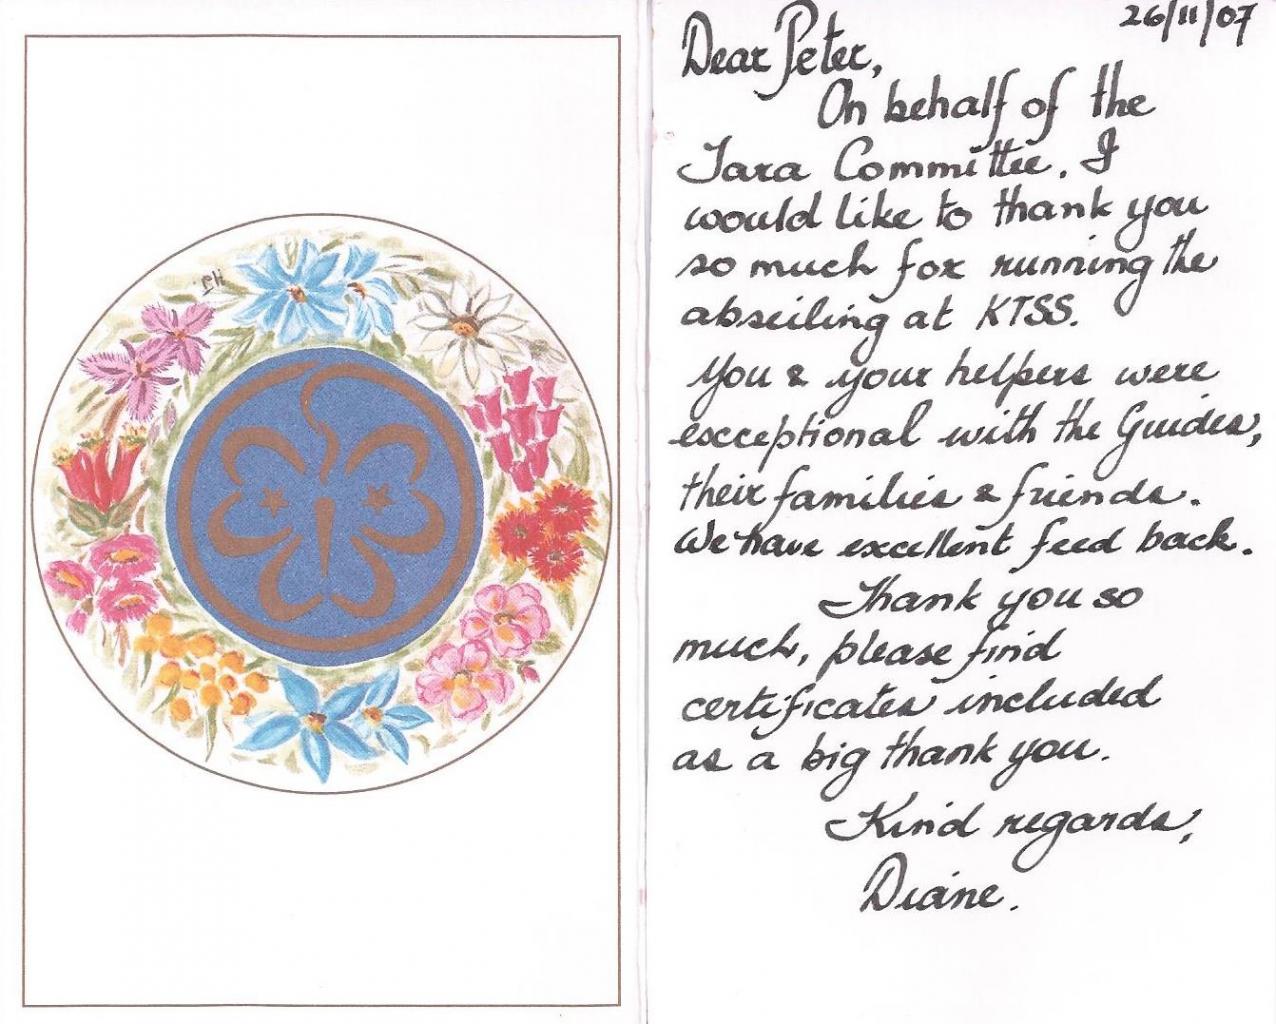 eli
26/11/07
Dear Peter,
On behalf of the
Tara Committee. I
would like to thank you
so much for running the
abseiling at KTSS.
You & your helpers were
excceptional with the Guides,
their families & friends.
We have excellent feed back.
Thank you so
much, please find
certificates included
as a big thank you.
Kind regards,
Diane.